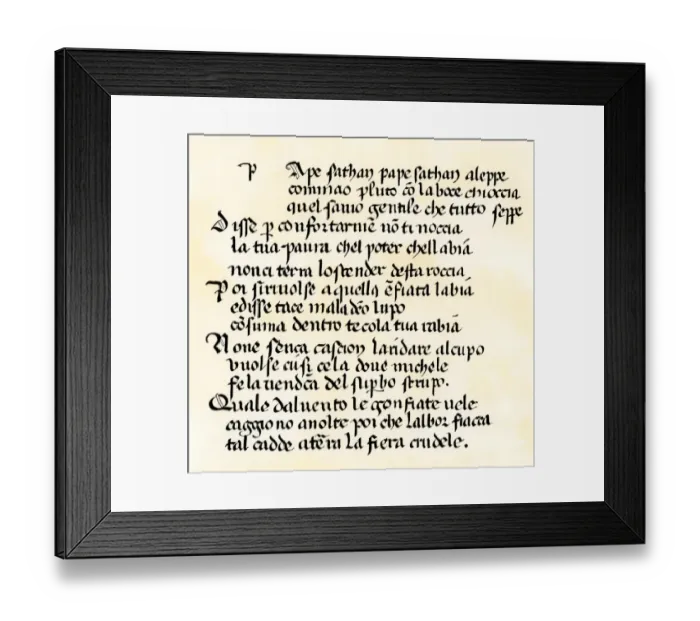 P Ape sathan pape sathan aleppe
cominao pluto cō la boce chioccia
quel sauio gentile che tutto seppe
Disse p̱ confortarmē nō ti noccia
la tua paura chel poter chell abiā
non ci terra lo scender desta roccia
Poi si riuolse a quella ēfiata labiā
edisse tace maladcō lupo
cōsuma dentro te cola tua rabiā
None sença casgion laridare alcupo
vuolse cusi cela doue michele
fe la uendcā del sup̱bo strupo.
Quale dal uento le gonfiate uele
caggiono auolte poi che lalbor fiacca
tal cadde a tērā la fiera crudele.